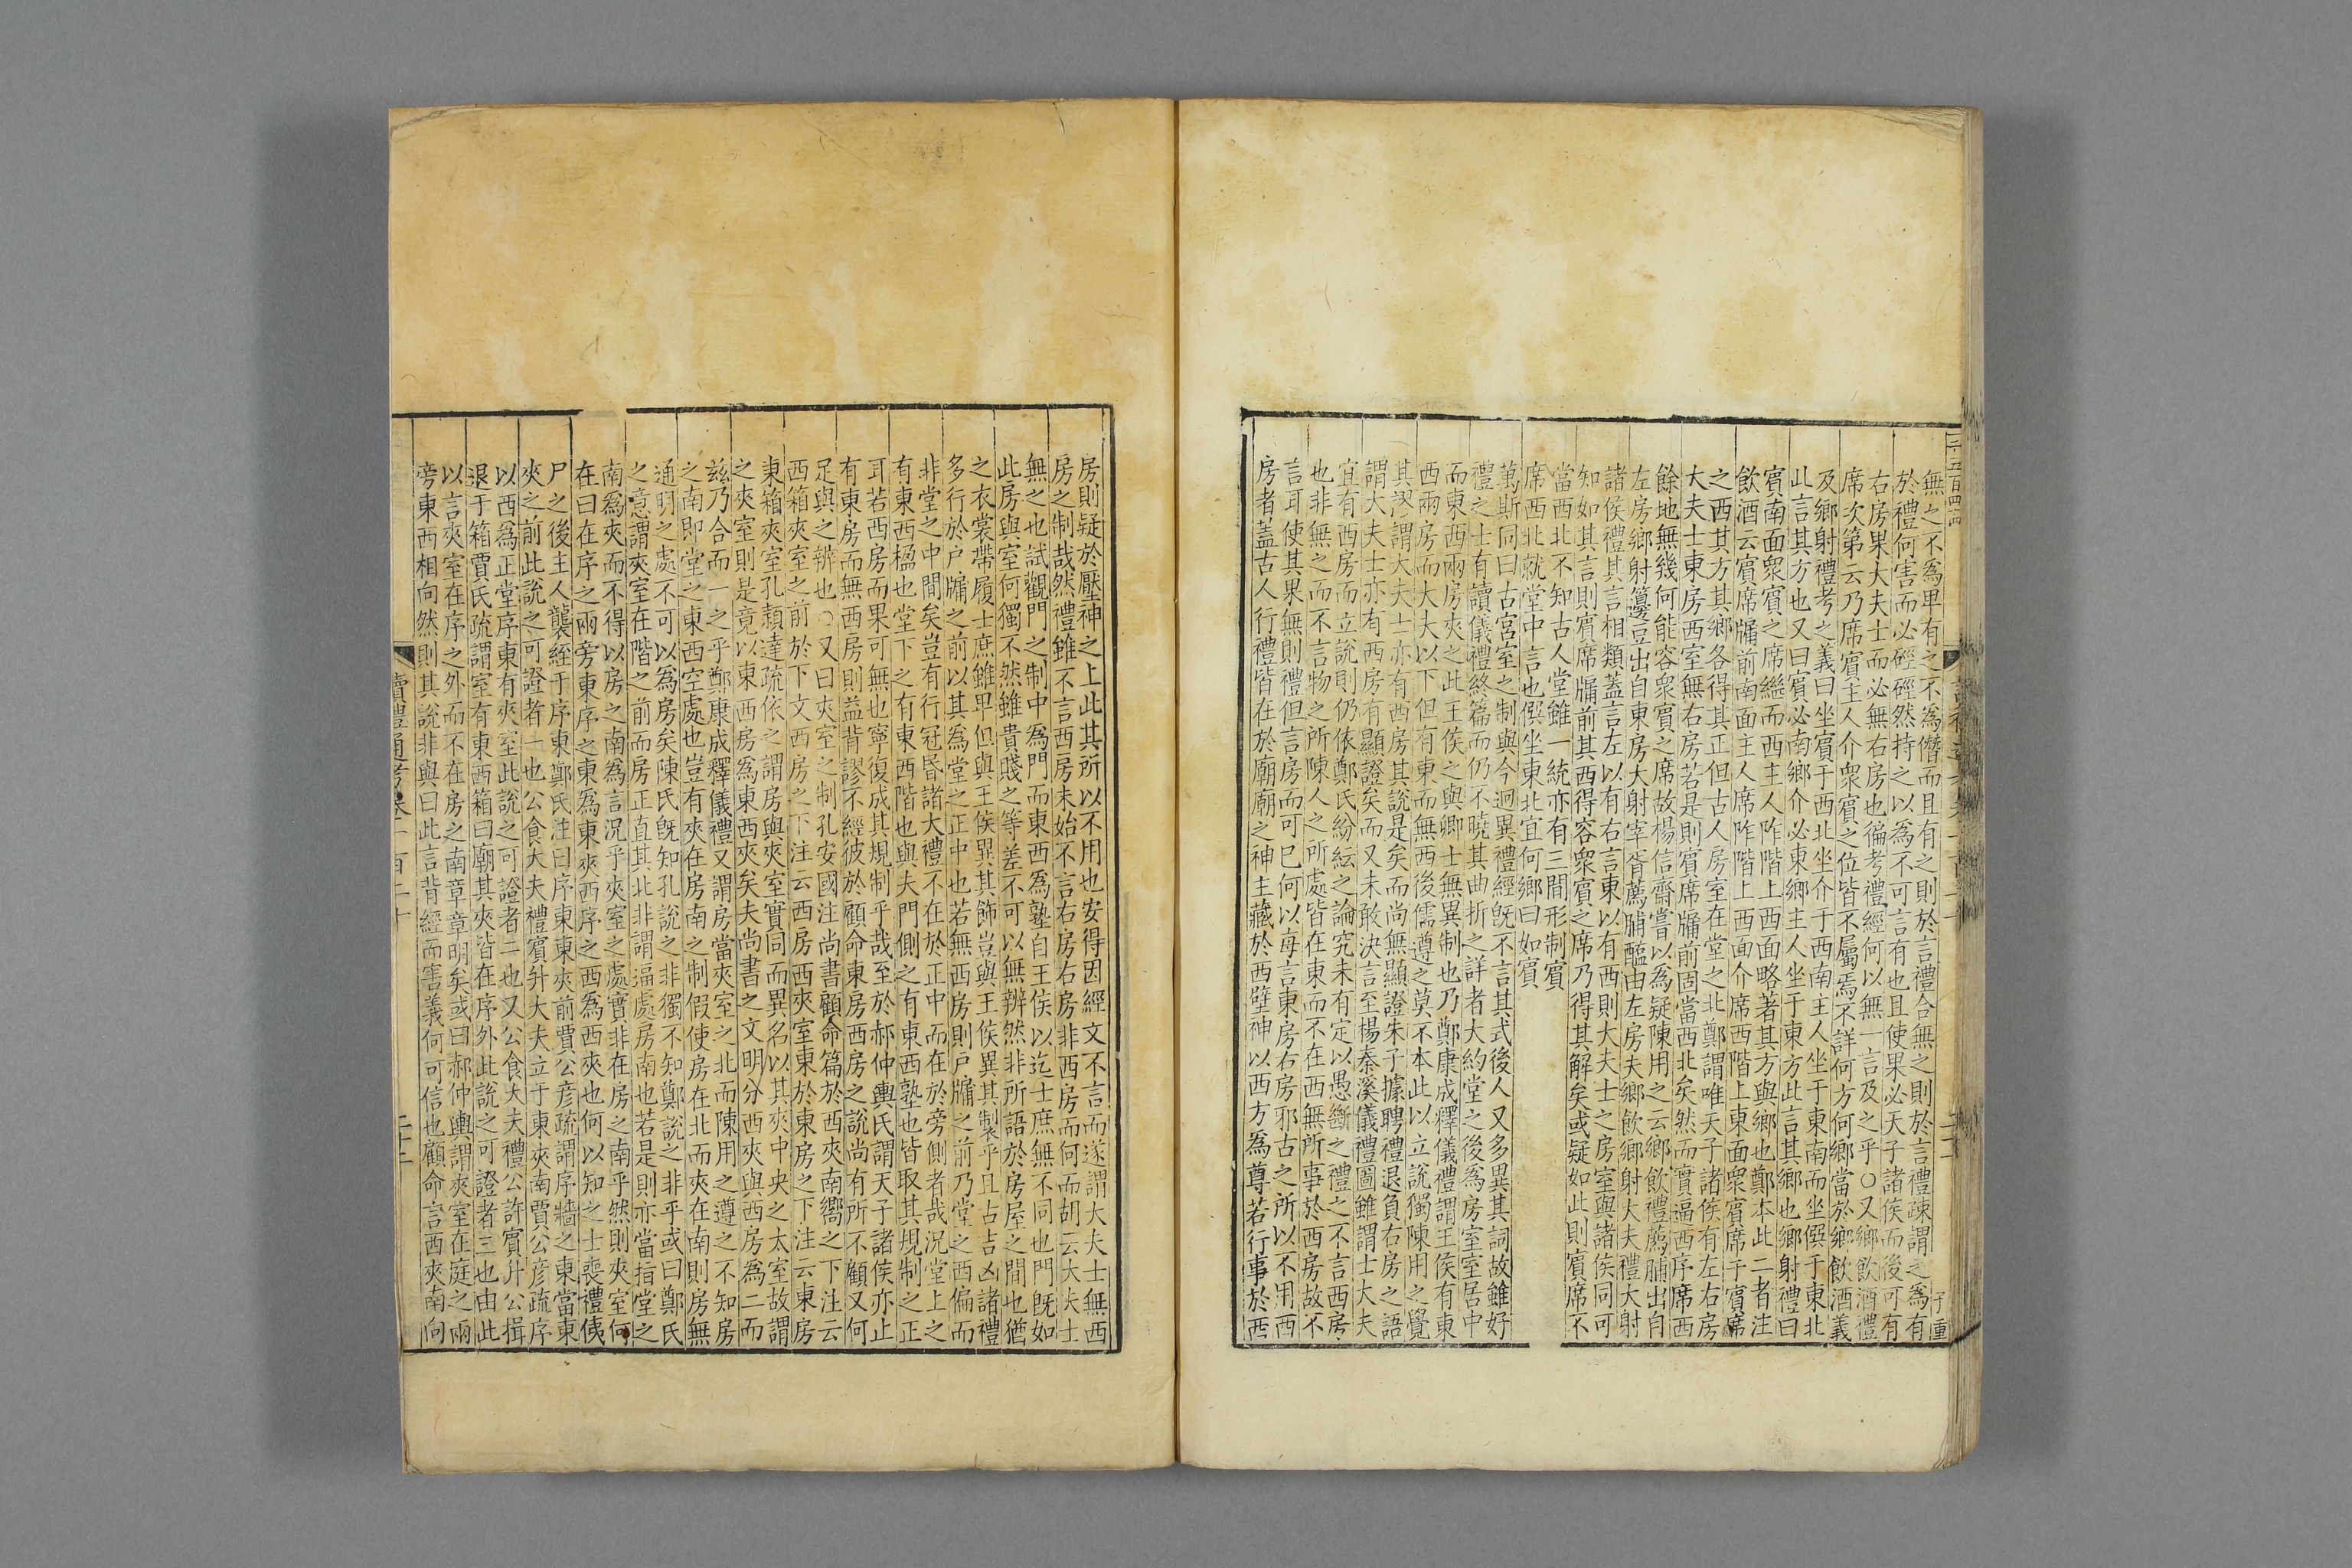 無之不爲卑有之不爲僭而且有之則於言禮合無之則於言禮疎謂之爲有
於禮何害而必硜硜然持之以爲不可言有也且使果必天子諸侯而後可有
右房果大夫士而必無右房也徧考禮經何以無一言及之乎○又鄉飲酒禮
席次第云乃席賓主人介衆賓之位皆不屬焉不詳何方何鄉當於鄉飲酒義
及鄉射禮考之義曰坐賓于西北坐介于西南主人坐于東南而坐僎于東北
此言其方也又曰賓必南鄉介必東鄉主人坐于東方此言其鄉也鄉射禮曰
賓南面衆賓之席繼而西主人阼階上西面略著其方與鄉也鄭本此二者注
飲酒云賓席牖前南面主人席阼階上西面介席西階上東面衆賓席于賓席
之西其方其鄉各得其正但古人房室在堂之北鄭謂唯天子諸侯有左右房
大夫士東房西室無右房若是則賓席牖前固當西北矣然而實逼西序席西
餘地無幾何能容衆賓之席故楊信齋嘗以為疑陳用之云鄉飲禮薦脯出自
左房鄉射籩豆出自東房大射宰胥薦脯醢由左房夫鄉飲鄉射大夫禮大射
諸侯禮其言相類蓋言左以有右言東以有西則大夫士之房室與諸侯同可
知如其言則賓席牖前其西得容衆賓之席乃得其解矣或疑如此則賓席不
當西北不知古人堂雖一統亦有三間形制賓
席西北就堂中言也僎坐東北宜何鄉曰如賓
萬斯同曰古宮室之制與今迥異禮經既不言其式後人又多異其詞故雖好
禮之士有讀儀禮終篇而仍不曉其曲折之詳者大約堂之後為房室室居中
而東西兩房夾之此王侯之與卿士無異制也乃鄭康成釋儀禮謂王侯有東
西兩房而大夫以下但有東而無西後儒遵之莫不本此以立說獨陳用之覺
其謬謂大夫士亦有西房其說是矣而尚無顯證朱子據聘禮退負右房之語
謂大夫士亦有西房有顯證矣而又未敢決言至楊秦溪儀禮圖雖謂士大夫
宜有西房而立說則仍依鄭氏紛紜之論究未有定以愚斷之禮之不言西房
也非無之而不言物之所陳人之所處皆在東而不在西無所事於西房故不
言耳使其果無則禮但言房而可已何以每言東房右房邪古之所以不用西
房者蓋古人行禮皆在於廟廟之神主藏於西壁神以西方為尊若行事於西
房則疑於壓神之上此其所以不用也安得因經文不言而遂謂大夫士無西
房之制哉然禮雖不言西房未始不言右房右房非西房而何而胡云大夫士
無之也試觀門之制中為門而東西爲塾自王侯以迄士庶無不同也門既如
此房與室何獨不然雖貴賤之等差不可以無辨然非所語於房屋之間也猶
之衣裳帶履士庶雖卑但與王侯異其飾豈與王侯異其製乎且古吉凶諸禮
多行於戶牖之前以其為堂之正中也若無西房則戶牖之前乃堂之西偏而
非堂之中間矣豈有行冠昏諸大禮不在於正中而在於旁側者哉況堂上之
有東西楹也堂下之有東西階也與夫門側之有東西塾也皆取其規制之正
耳若西房而果可無也寧復成其規制乎哉至於郝仲輿氏謂天子諸侯亦止
有東房而無西房則益背謬不經彼於顧命東房西房之說尚有所不顧又何
足與之辨也○又曰夾室之制孔安國注尚書顧命篇於西夾南嚮之下注云
西箱夾室之前於下文西房之下注云西房西夾室東於東房之下注云東房
東箱夾室孔穎達疏依之謂房與夾室實同而異名以其夾中央之太室故謂
之夾室則是竟以東西房爲東西夾矣夫尚書之文明分西夾與西房為二而
兹乃合而一之乎鄭康成釋儀禮又謂房當夾室之北而陳用之遵之不知房
之南即堂之東西空處也豈有夾在房南之制假使房在北而夾在南則房無
通明之處不可以為房矣陳氏既知孔說之非獨不知鄭說之非乎或曰鄭氏
之意謂夾室在階之前而房正直其北非謂逼處房南也若是則亦當指堂之
南爲夾而不得以房之南為言況乎夾室之處實非在房之南乎然則夾室何
在曰在序之兩旁東序之東爲東夾西序之西為西夾也何以知之士喪禮侇
尸之後主人襲絰于序東鄭氏注曰序東東夾前賈公彥疏謂序牆之東當東
夾之前此說之可證者一也公食大夫禮賓升大夫立于東夾南賈公彥疏序
以西爲正堂序東有夾室此說之可證者二也又公食大夫禮公許賓升公揖
退于箱賈氏疏謂室有東西箱曰廟其夾皆在序外此說之可證者三也由此
以言夾室在序之外而不在房之南章章明矣或曰郝仲輿謂夾室在庭之兩
旁東西相向然則其說非與曰此言背經而害義何可信也顧命言西夾南向
讀禮通考卷一百二十
二十二